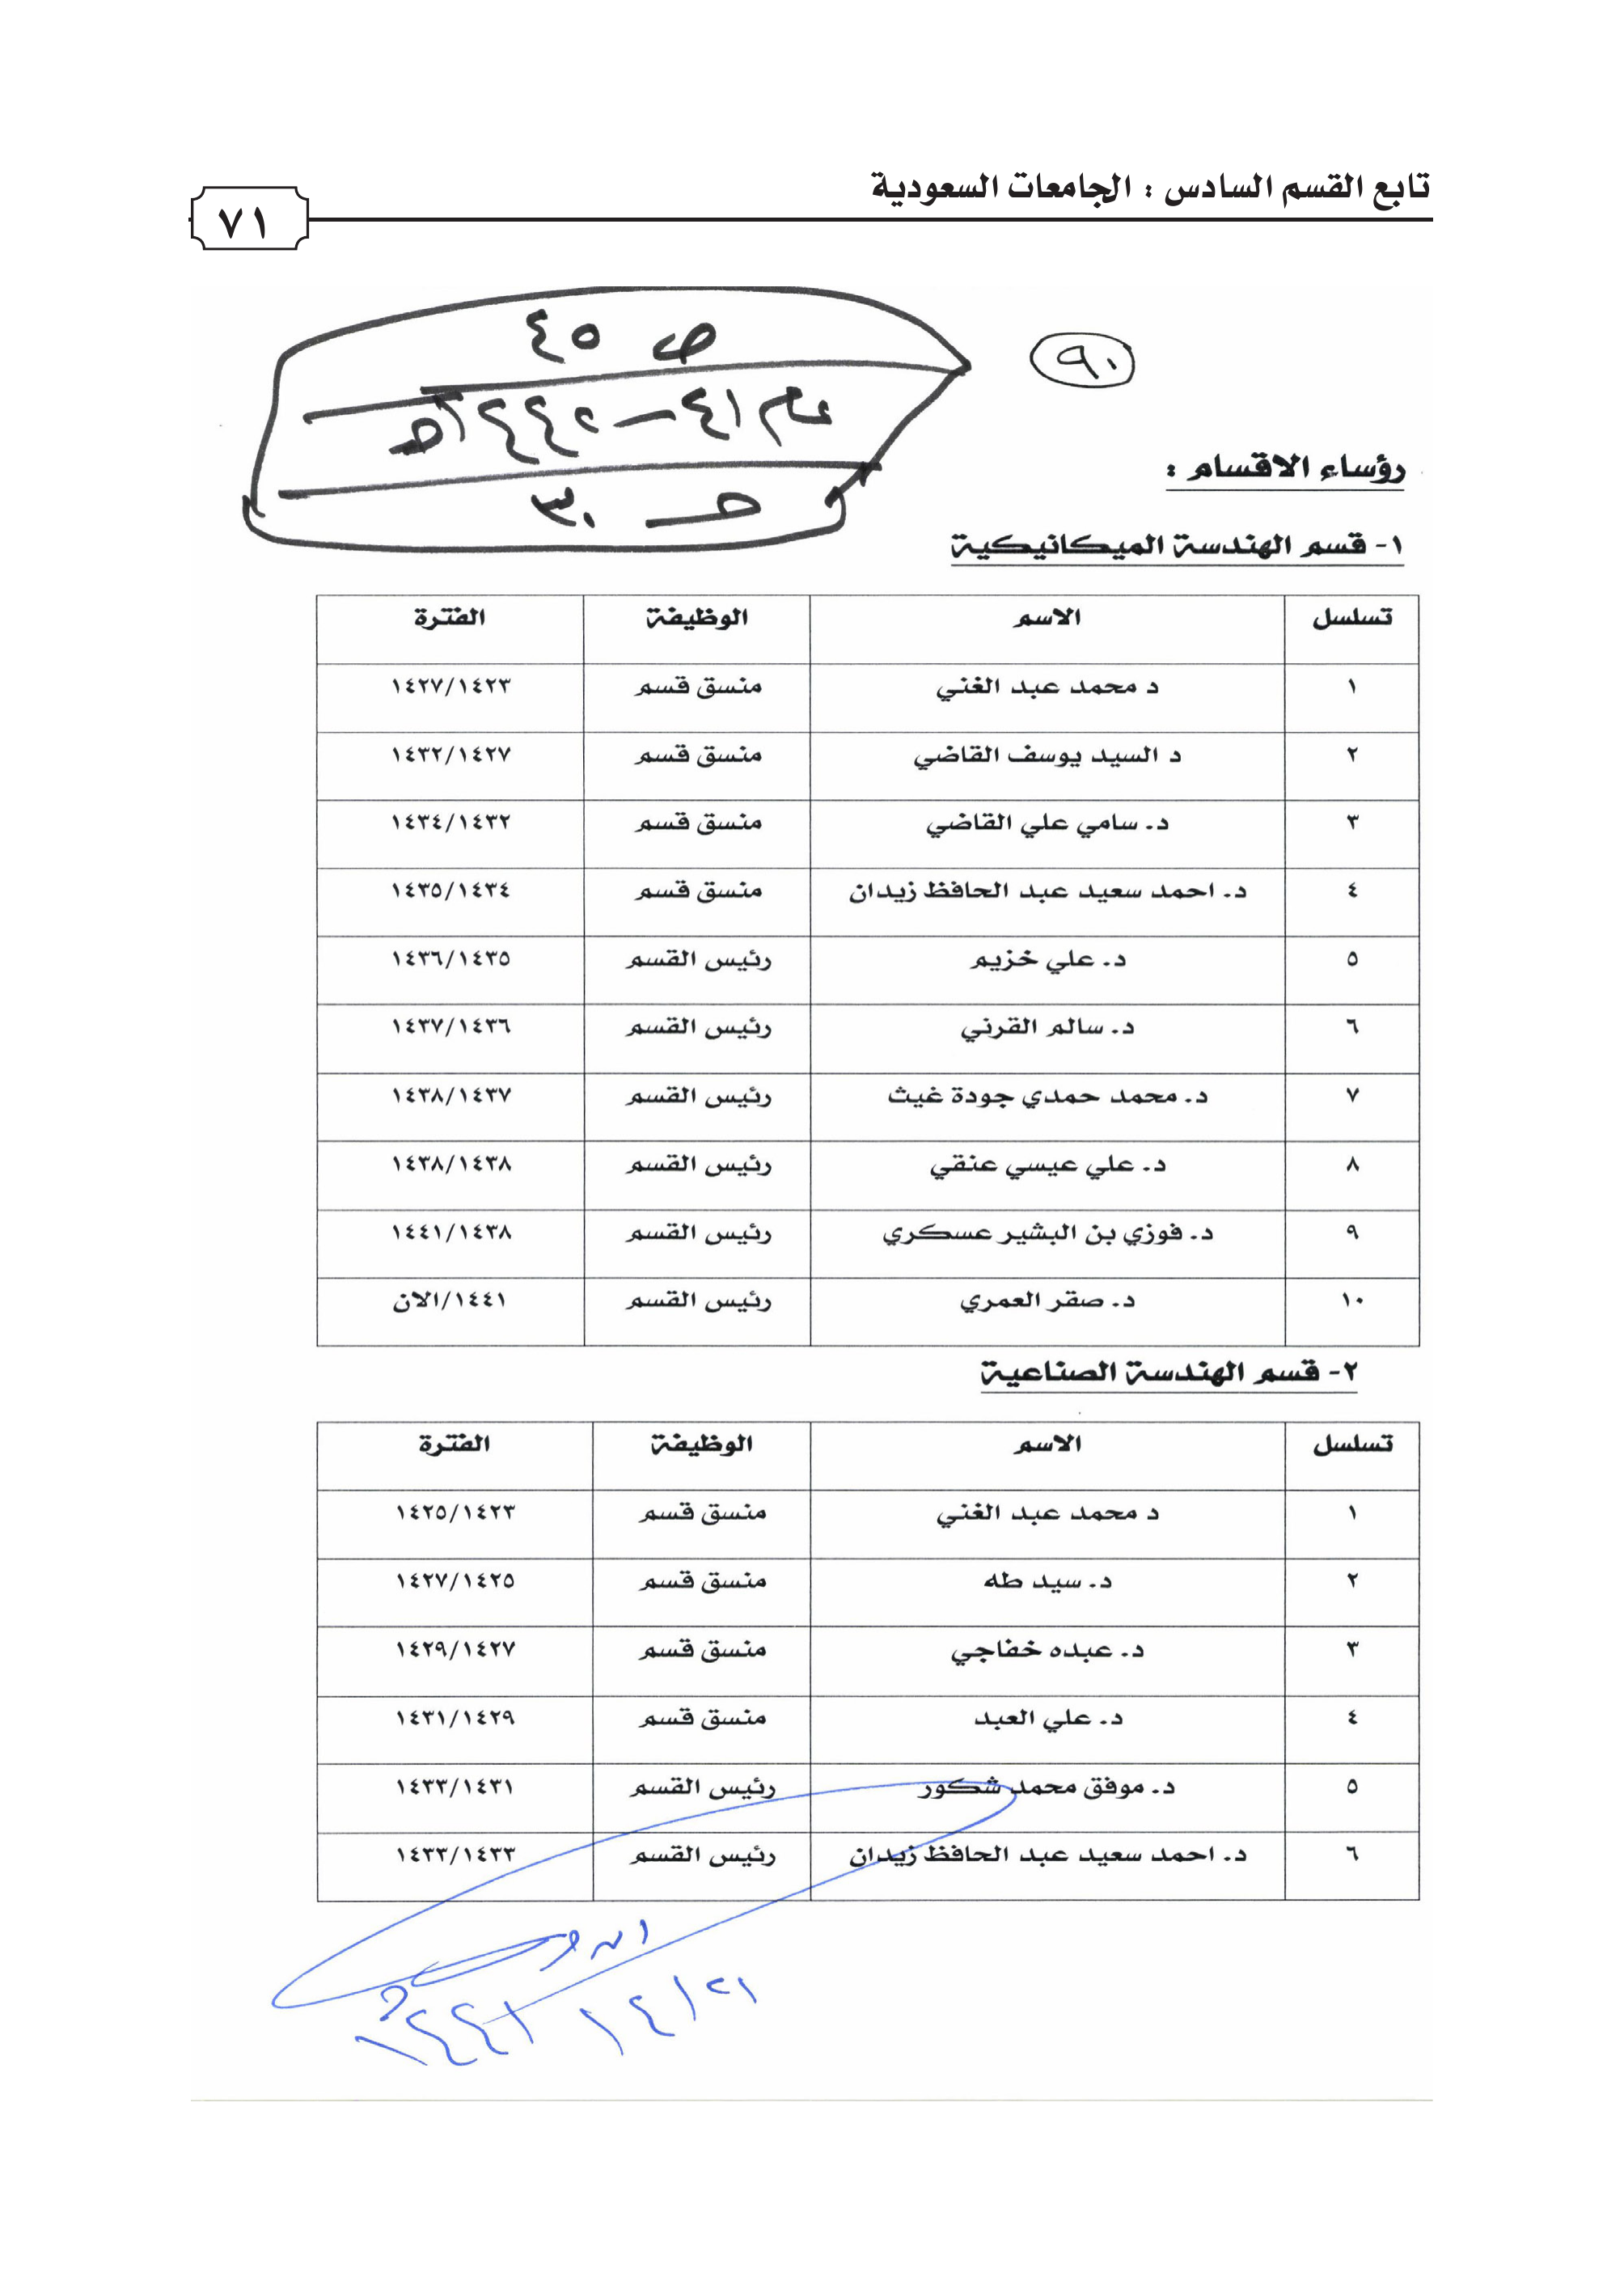 تابع القسم السادس : الجامعات السعودية
٧١
٩٠
ص ٤٥
عام ٤١ - ١٤٤٢هـ
حـ ٣٠
رؤساء الاقسام :
١- قسم الهندسة الميكانيكية
تسلسل الاسم الوظيفة الفترة
١ د محمد عبد الغني منسق قسم ١٤٢٧/١٤٢٣
٢ د السيد يوسف القاضي منسق قسم ١٤٣٢/١٤٢٧
٣ د. سامي علي القاضي منسق قسم ١٤٣٤/١٤٣٢
٤ د. احمد سعيد عبد الحافظ زيدان منسق قسم ١٤٣٥/١٤٣٤
٥ د. علي خزيم رئيس القسم ١٤٣٦/١٤٣٥
٦ د. سالم القرني رئيس القسم ١٤٣٧/١٤٣٦
٧ د. محمد حمدي جودة غيث رئيس القسم ١٤٣٨/١٤٣٧
٨ د. علي عيسي عنقي رئيس القسم ١٤٣٨/١٤٣٨
٩ د. فوزي بن البشير عسكري رئيس القسم ١٤٤١/١٤٣٨
١٠ د. صقر العمري رئيس القسم ١٤٤١/الان
٢- قسم الهندسة الصناعية
تسلسل الاسم الوظيفة الفترة
١ د محمد عبد الغني منسق قسم ١٤٢٥/١٤٢٣
٢ د. سيد طه منسق قسم ١٤٢٧/١٤٢٥
٣ د. عبده خفاجي منسق قسم ١٤٢٩/١٤٢٧
٤ د. علي العبد منسق قسم ١٤٣١/١٤٢٩
٥ د. موفق محمد شكور رئيس القسم ١٤٣٣/١٤٣١
٦ د. احمد سعيد عبد الحافظ زيدان رئيس القسم ١٤٣٣/١٤٣٣